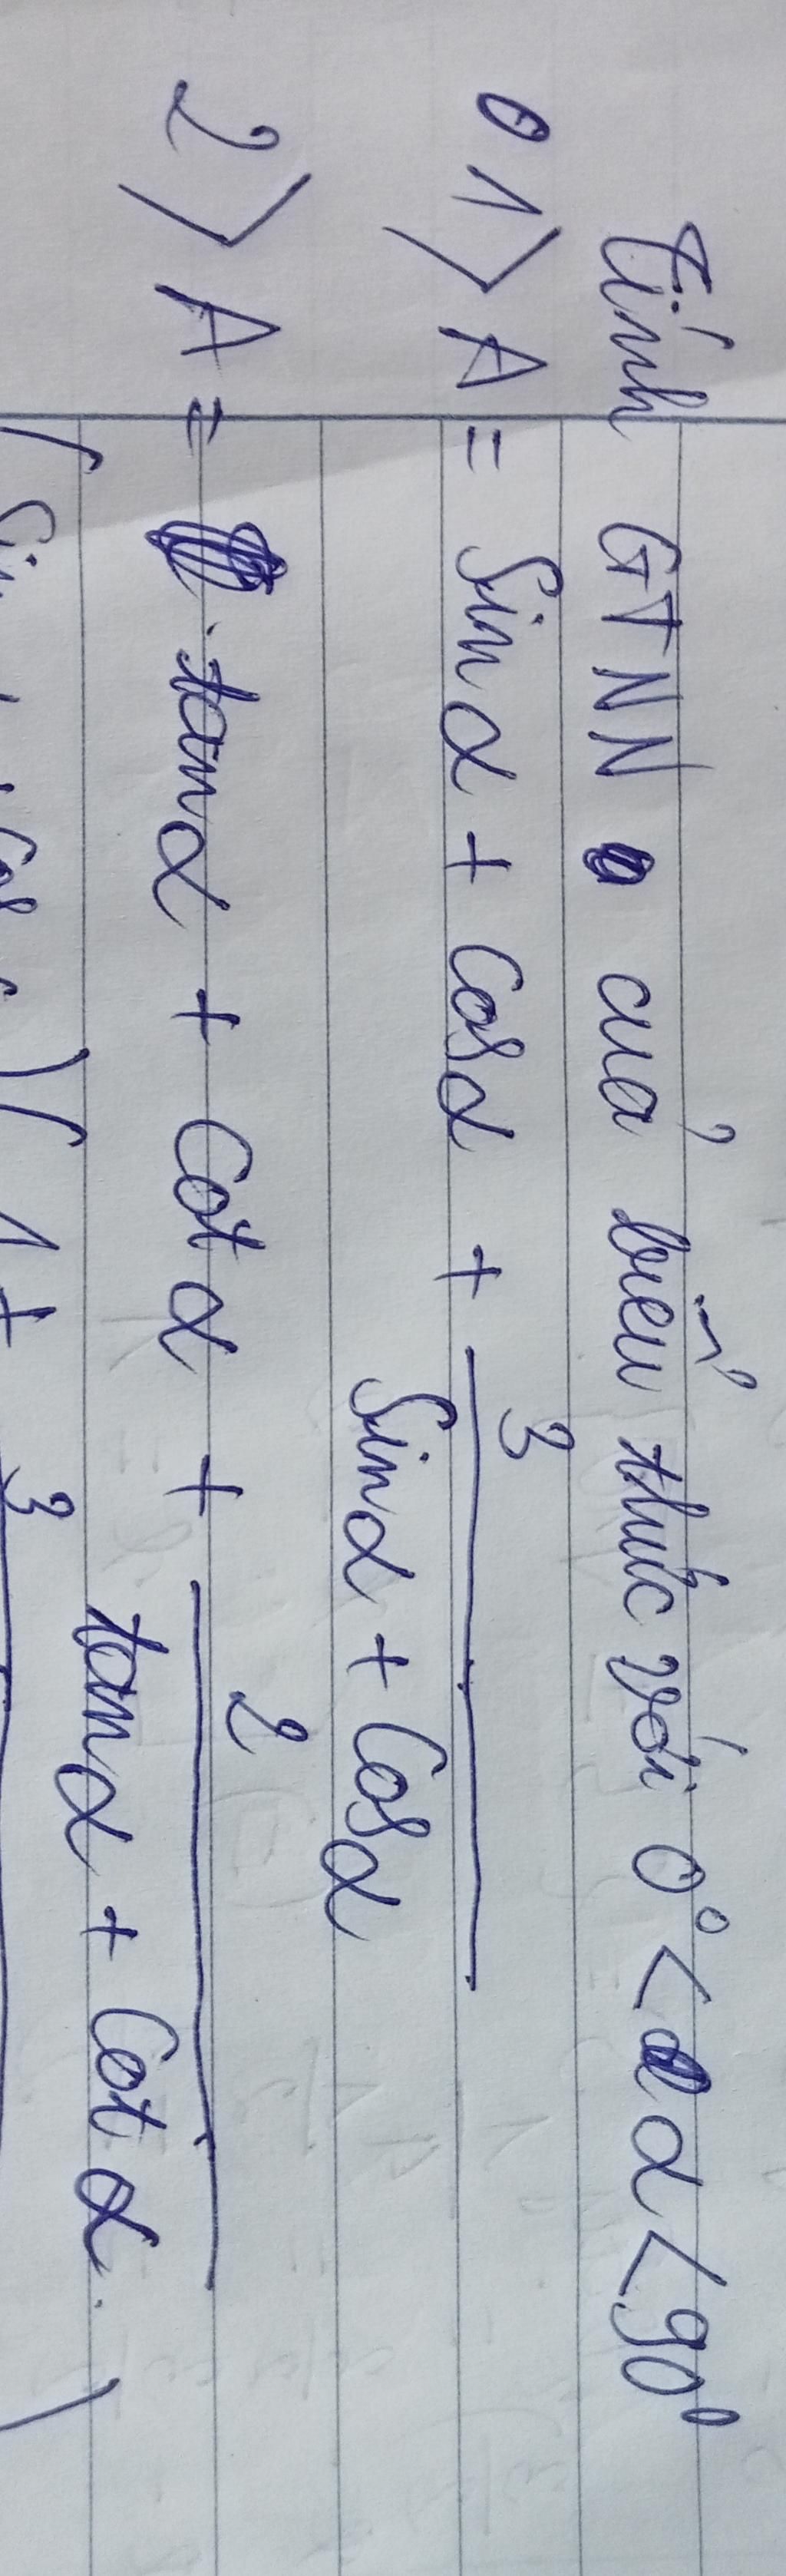 Tính GTNN của biểu thức với 0° < α < 90°
1> A = Sin α + Cos α + 3 / Sin α + Cos α
2> A = tan α + Cot α + 2 / tan α + Cot α.
3